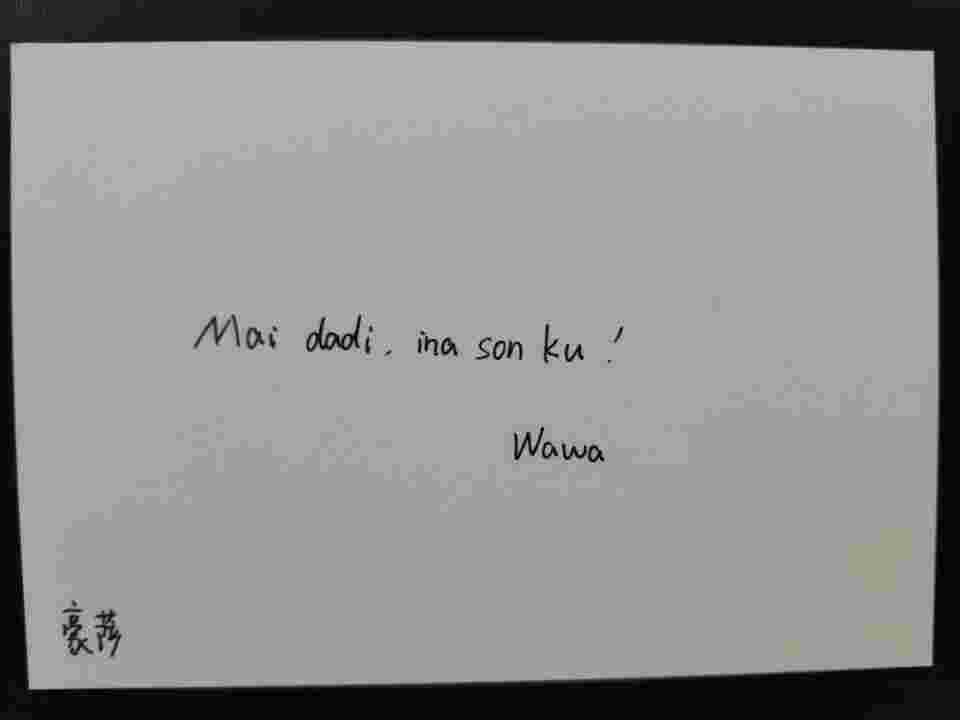 Mai dadi, ina son ku!
Wawa
豪莎